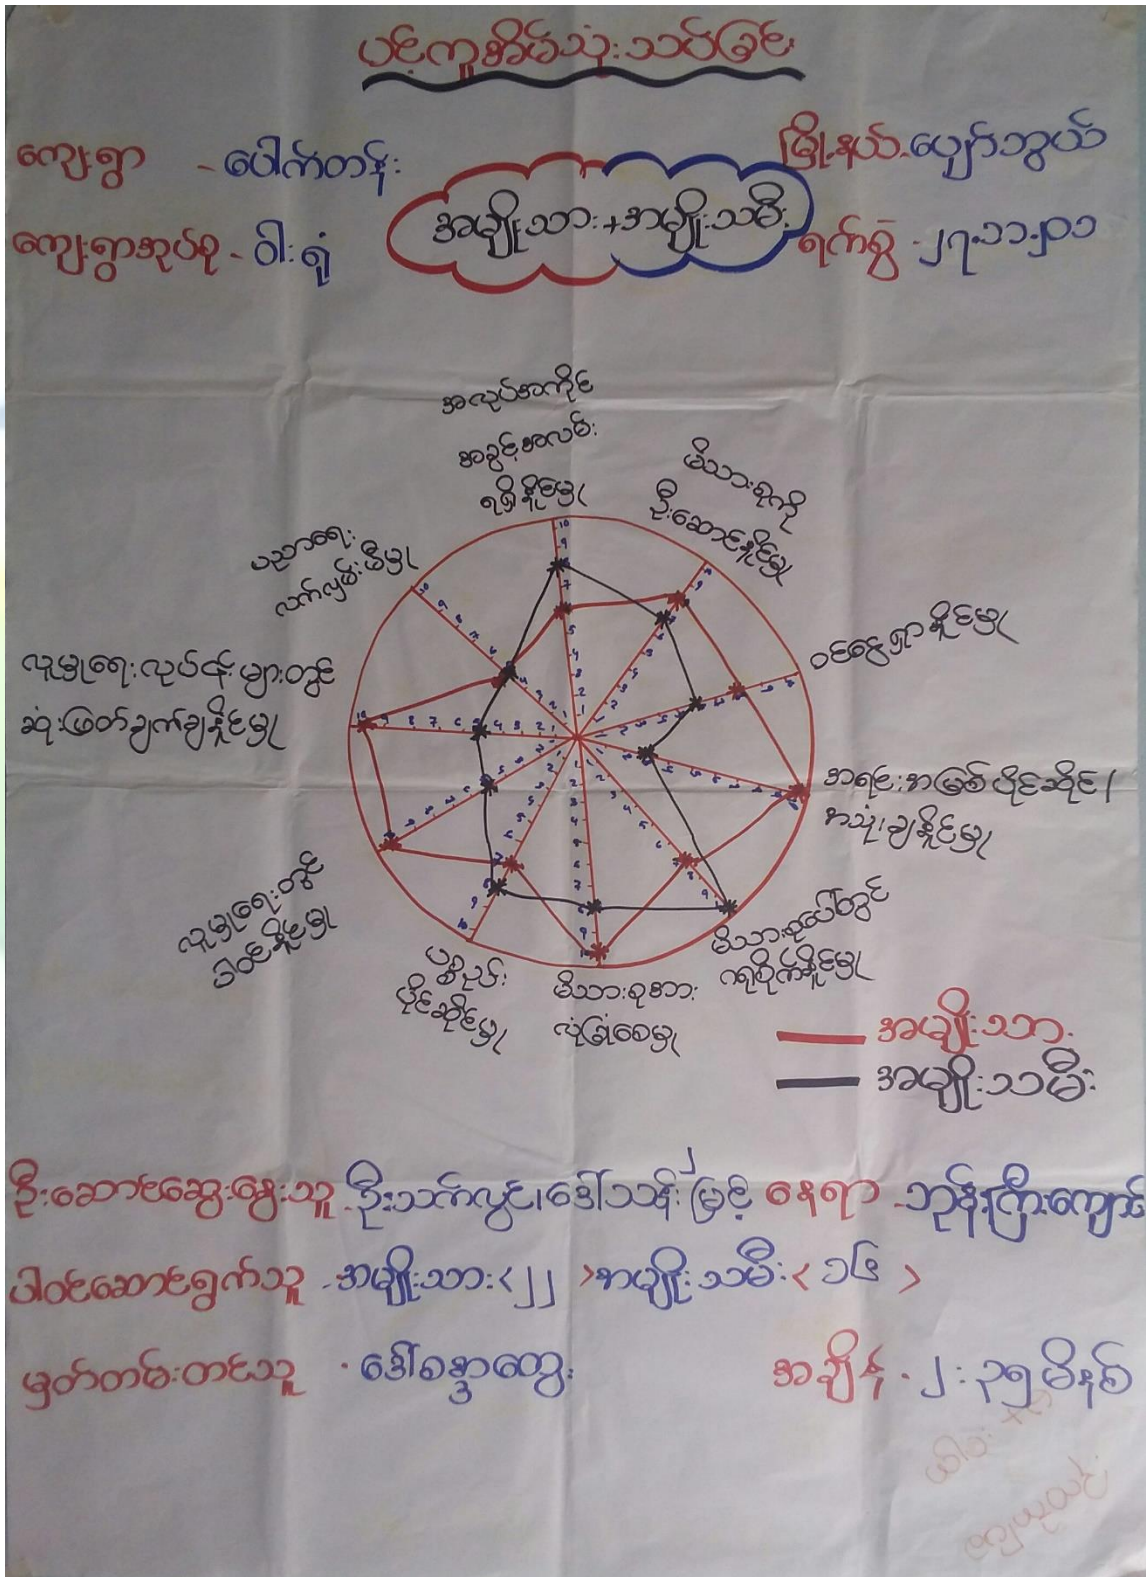 ပင့်ကူအိမ်သုံးသပ်ခြင်း
ကျေးရွာ - ပေါက်တန်း
မြို့နယ် - ပျော်ဘွယ်
အမျိုးသား + အမျိုးသမီး
ကျေးရွာအုပ်စု - ဝါးရုံ
ရက်စွဲ - ၂၇.၁၁.၂၀၁
အလုပ်အကိုင်
အခွင့်အလမ်း
ရရှိနိုင်မှု
မိသားစုကို
ဦးဆောင်နိုင်မှု
ဝင်ငွေရှာနိုင်မှု
အရင်းအမြစ်ပိုင်ဆိုင်/
အသုံးချနိုင်မှု
မိသားစုပေါ်တွင်
ဂရုစိုက်နိုင်မှု
မိသားစုအား
လုံခြုံစေမှု
ပစ္စည်း
ပိုင်ဆိုင်မှု
လူမှုရေးတွင်
ပါဝင်နိုင်မှု
လူမှုရေးလုပ်ငန်းများတွင်
ဆုံးဖြတ်ချက်ချနိုင်မှု
ပညာရေး
လက်လှမ်းမီမှု
အမျိုးသား
အမျိုးသမီး
ဦးဆောင်ဆွေးနွေးသူ - ဦးသက်လွင်၊ ဒေါ်သန်းမြင့် နေရာ - ဘုန်းကြီးကျောင်း
ပါဝင်ဆောင်ရွက်သူ - အမျိုးသား < ၂၂ > အမျိုးသမီး < ၁၆ >
မှတ်တမ်းတင်သူ - ဒေါ်စန္ဒာထွေး
အချိန် - ၂ : ၃၅ မိနစ်